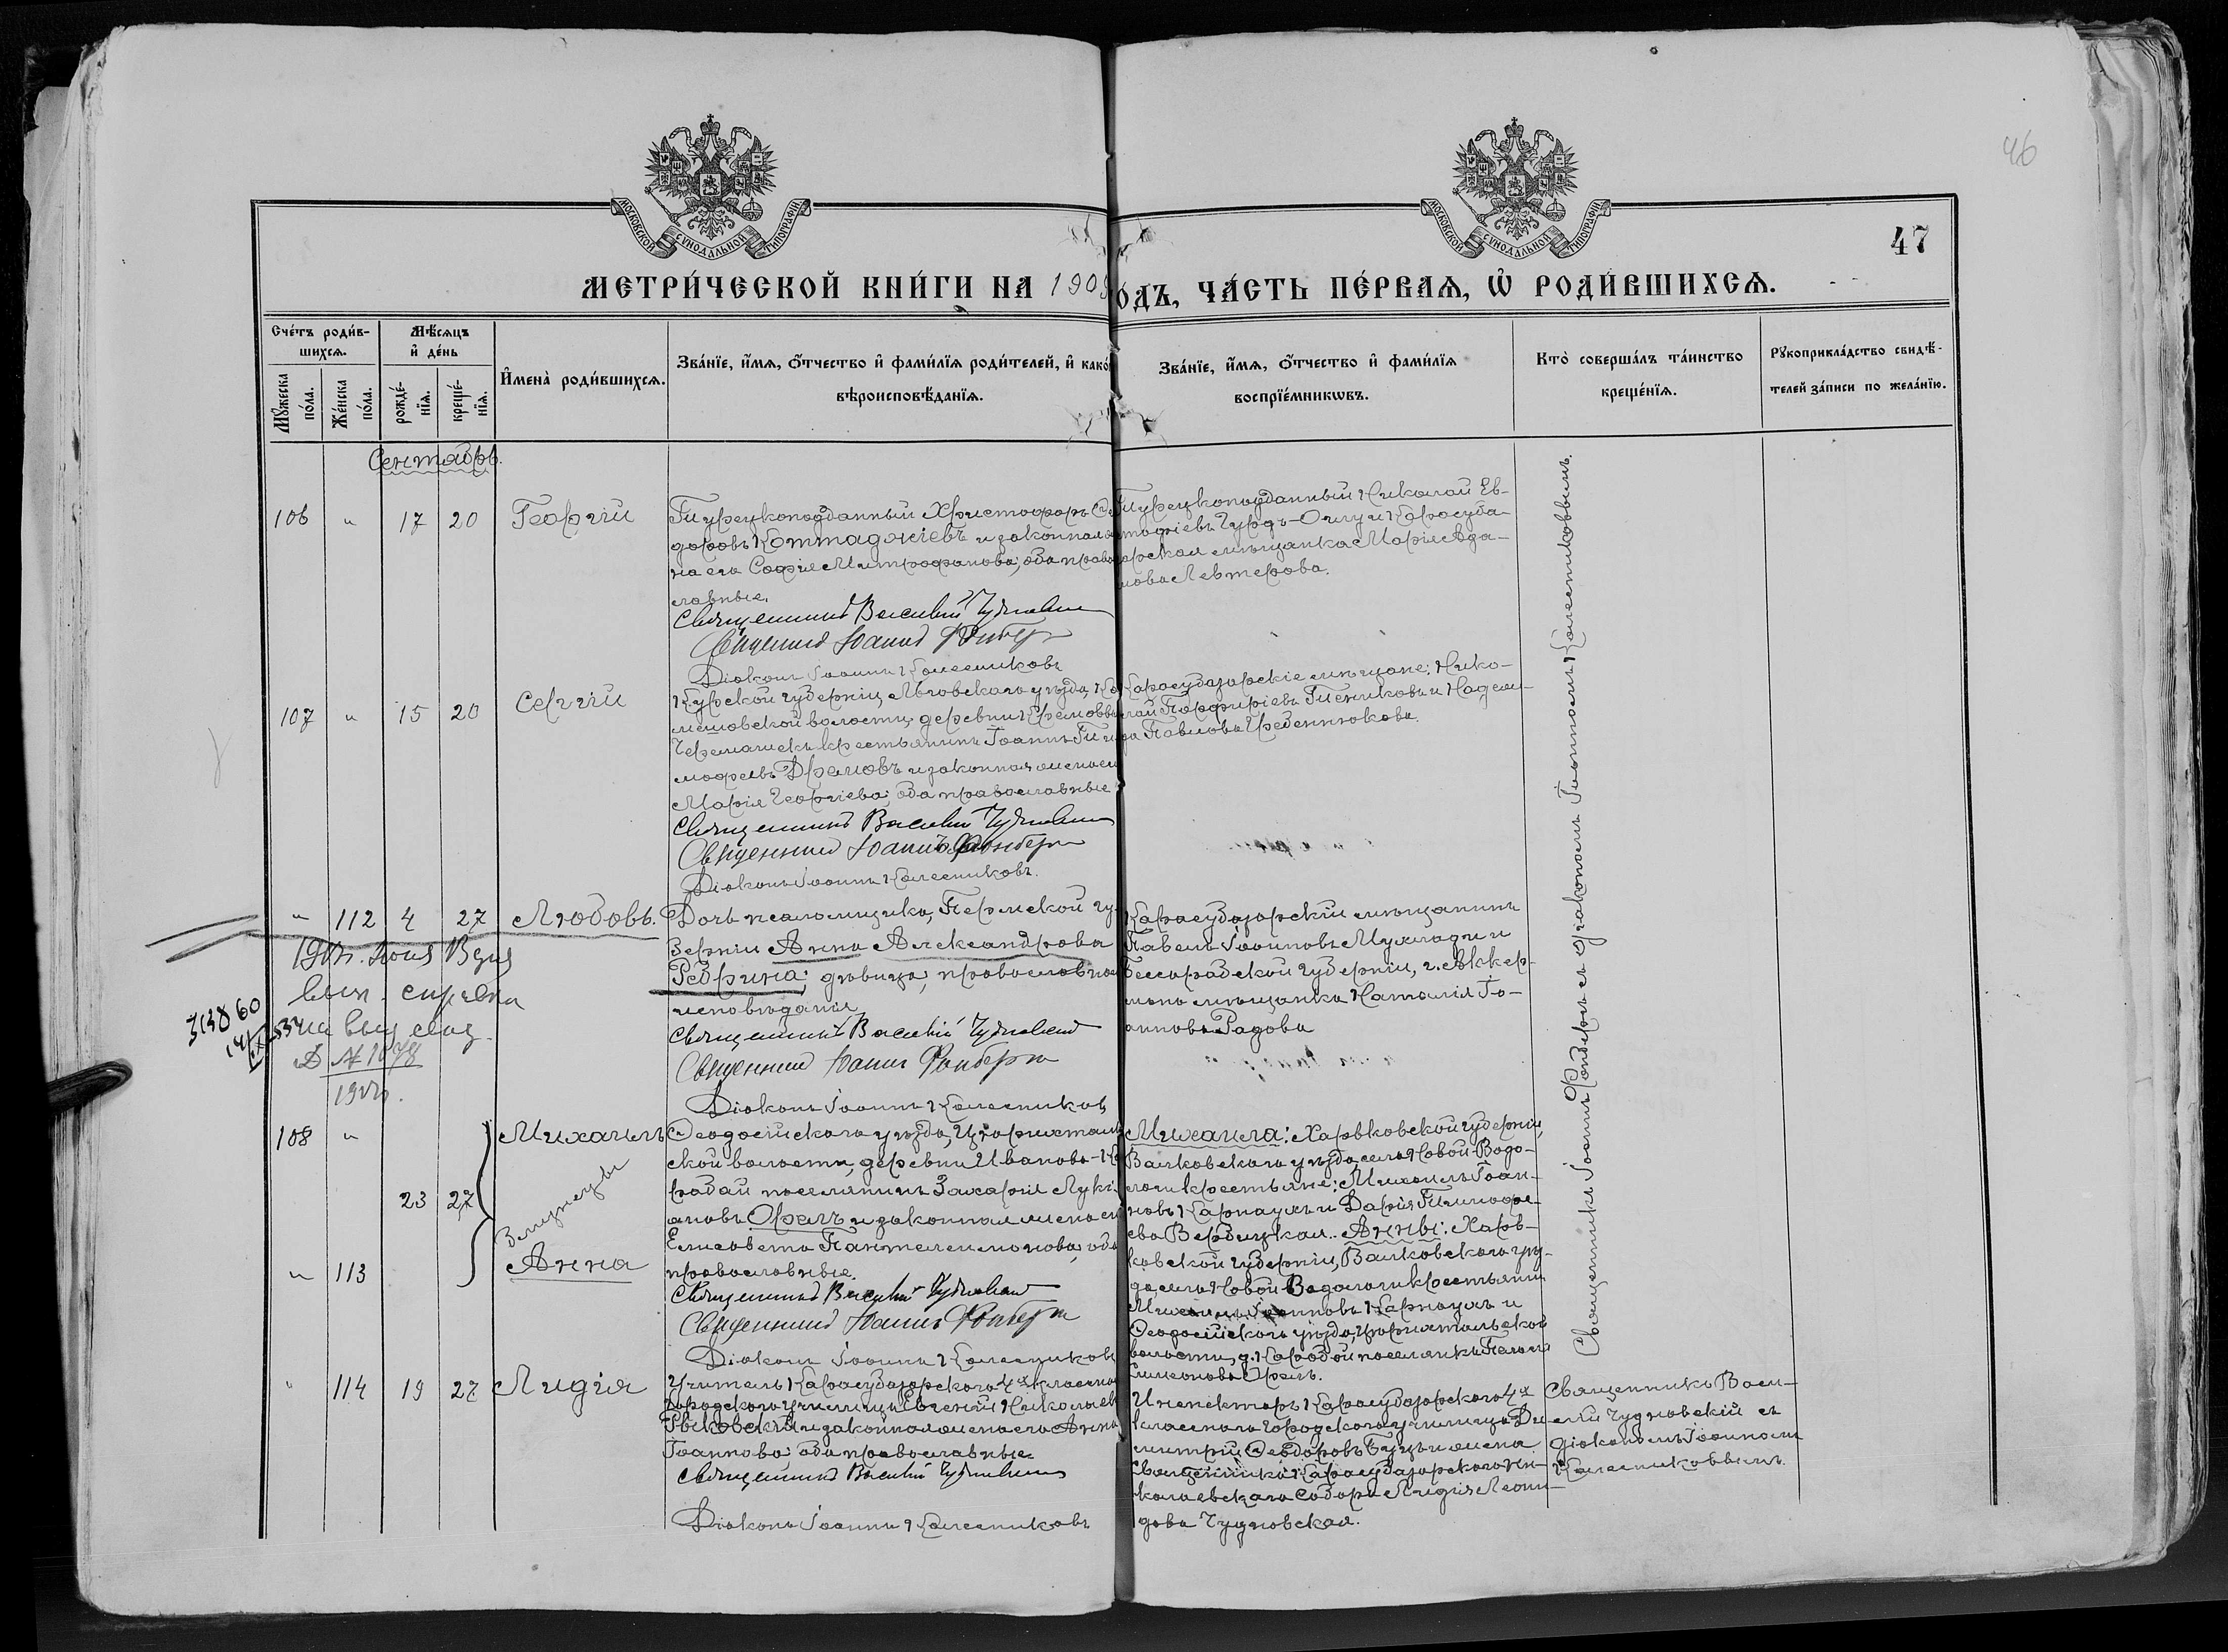 46
47
МОСКОВСКОЙ СѴНОДАЛЬНОЙ ТИПОГРАФІИ
МОСКОВСКОЙ СѴНОДАЛЬНОЙ ТИПОГРАФІИ
МЕТРИ́ЧЕСКОЙ КНИ́ГИ НА 190
ОДЪ, ЧА́СТЬ ПЕ́РВАЯ, Ѡ РОДИ́ВШИХСЯ.
Сче́тъ роди́в-
шихся.
Мѣ́сяцъ
и де́нь
Мꙋ́жеска по́ла.
Же́нска по́ла.
рожде́-нїя.
креще́-нїя.
Имена̀ роди́вшихся.
Зва́нїе, и́мя, о́тчество и фами́лїя роди́телей, и како́
вѣроисповѣ́данїя.
Зва́нїе, и́мя, о́тчество и фами́лїя
воспрїе́мникѡвъ.
Кто̀ соверша́лъ та́инство
креще́нїя.
Рꙋкоприкла́дство свидѣ́-
телей за́писи по жела́нїю.
Сентябрь.
106 " 17 20 Георгій
Турецкоподданный Христофоръ Ѳе
доровъ Коттаджіевъ и законная же
на его Софія Митрофанова, оба право
славные.
Священникъ Василій Чудновскій
Священникъ Іоаннъ Фонберг
Діаконъ Іоаннъ Колесниковъ
Турецкоподданный Николай Ев-
стафіевъ Чурдъ-Оглу и Карасуба-
зарская мѣщанка Марія Ада-
мова Левтерова.
107 " 15 20 Сергій
Курской губерніи, Льговскаго уѣзда,
волости, деревни
Черемошекъ крестьянинъ Іоаннъ Ти
моѳеевъ Еремовъ и законная жена его
Марія Георгіева, оба православные
Священникъ Василій Чудновскій
Священникъ Іоаннъ Фонберг
Діаконъ Іоаннъ Колесниковъ.
Карасубазарскіе мѣщане: Нико-
лай Порфиріевъ Теняковъ и Надеж-
да Павлова Гребенникова.
" 112 4 27 Любовь.
Дочь псаломщика, Пермской гу-
берніи Анна Александрова
Ребрина; дѣвица, православнаго
исповѣданія
Священникъ Василій Чудновскій
Священникъ Іоаннъ Фонберг
Діаконъ Іоаннъ Колесниковъ
Карасубазарскій мѣщанинъ
Павелъ Іоанновъ Мухлади и
Бессарабской губерніи, г. Аккер-
мана мѣщанка Наталія Іо-
аннова Радова
вып. справка
№ 1078
108 " Михаилъ
23 27
Близнецы
" 113 Анна
Ѳеодосійскаго уѣзда, Цюрихталь
ской волости, деревни Иваново-
радай поселянинъ Захарія Луки-
ановъ Орелъ и законная жена его
Елисавета Пантелеимонова, оба
православные.
Священникъ Василій Чудновскій
Священникъ Іоаннъ Фонберг
Діаконъ Іоаннъ Колесниковъ
Михаила: Харьковской губерніи,
Валковскаго уѣзда, села Новой-Водо-
лаги крестьяне: Михаилъ Іоан-
новъ Карнаухъ и Дарія Тимоѳе-
ева Вербицкая. Анны: Харь-
ковской губерніи, Валковскаго уѣз-
да, села Новой Водолаги крестьянинъ
Михаилъ Іоанновъ Карнаухъ и
Ѳеодосійскаго уѣзда, Цюрихтальской
волости, д. Карабай поселянка Пелагія
Симеонова Орелъ.
" 114 19 27 Лидія
Учитель Карасубазарскаго 4х класснаго
городского училища Евгеній Николаевъ
и законная жена его Анна
Іоаннова, оба православные
Священникъ Василій Чудновскій
Діаконъ Іоаннъ Колесниковъ
Инспекторъ Карасубазарскаго 4х
класснаго городскаго училища Ди-
митрій Ѳеодоровъ Буцъ и жена
священника Карасубазарскаго Ни-
колаевскаго Собора Лидія Леони-
дова Чудновская.
Священникъ Іоаннъ Фонбергъ съ діакономъ Іоанномъ Колесниковымъ.
Священникъ Васи-
лій Чудновскій съ
діакономъ Іоанномъ
Колесниковымъ.